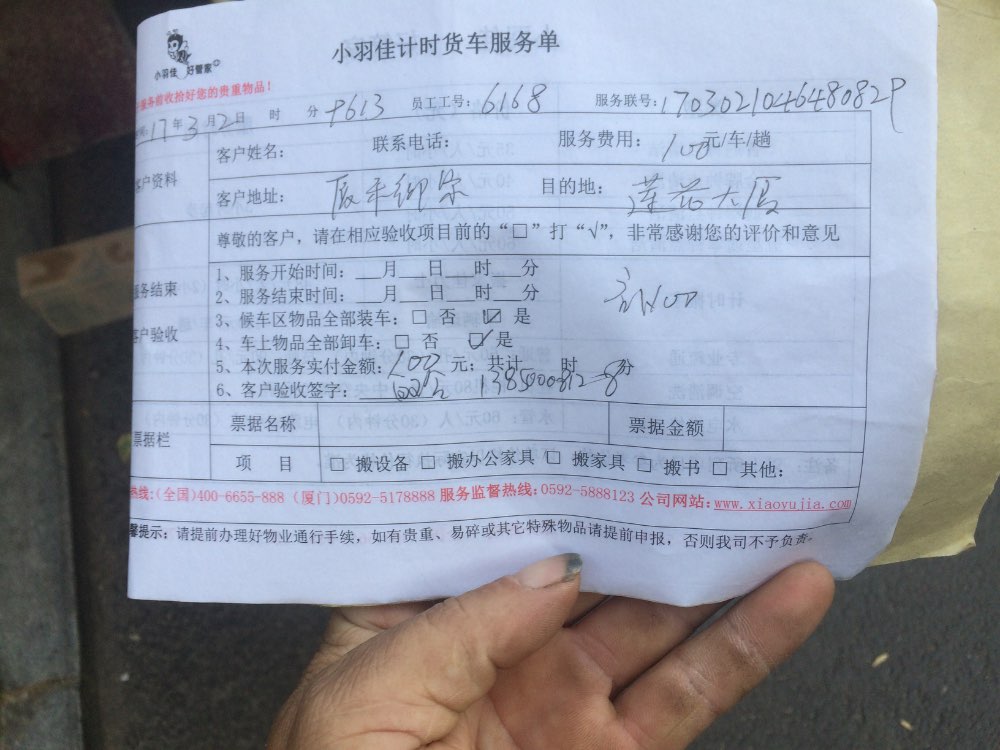 小羽佳计时货车服务单
小羽佳 好管家
服务前收拾好您的贵重物品!
间: 17年3月2日 时 分 +613 员工工号: 6168 服务联号: 1703021046480829
客户资料 客户姓名: 联系电话: 服务费用: 100元/车/趟
客户地址: 目的地: 莲花大厦
尊敬的客户，请在相应验收项目前的“□”打“√”，非常感谢您的评价和意见
服务结束
客户验收
1、服务开始时间: ___月___日___时___分
2、服务结束时间: ___月___日___时___分
3、候车区物品全部装车: □ 否 ☑ 是
4、车上物品全部卸车: □ 否 ☑ 是
5、本次服务实付金额: 100 元; 共计 时 分
6、客户验收签字:
票据栏 票据名称 票据金额
项 目 □ 搬设备 □ 搬办公家具 □ 搬家具 □ 搬书 □ 其他:
热线:(全国)400-6655-888 (厦门)0592-5178888 服务监督热线:0592-5888123 公司网站:www.xiaoyujia.com
馨提示: 请提前办理好物业通行手续，如有贵重、易碎或其它特殊物品请提前申报，否则我司不予负责